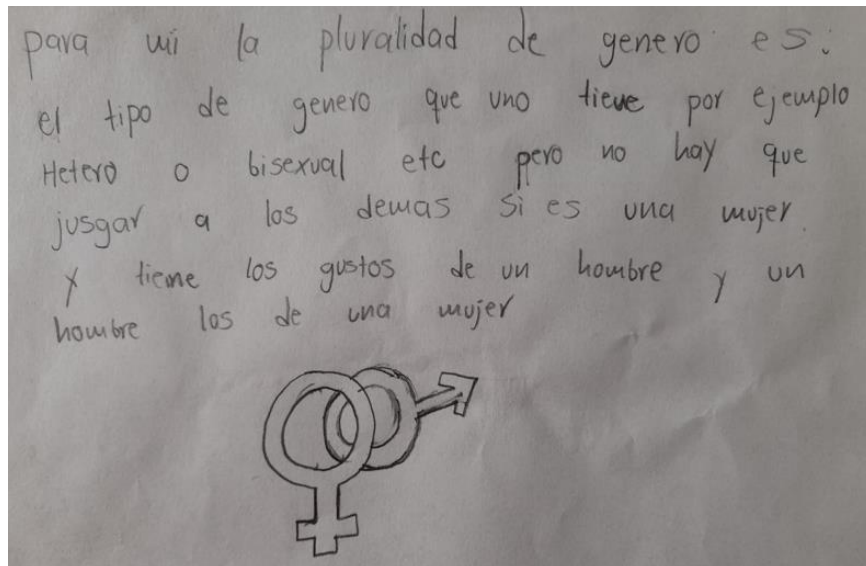 para mi la pluralidad de genero es:
el tipo de genero que uno tiene por ejemplo
Hetero o bisexual etc pero no hay que
jusgar a los demas si es una mujer
y tiene los gustos de un hombre y un
hombre los de una mujer